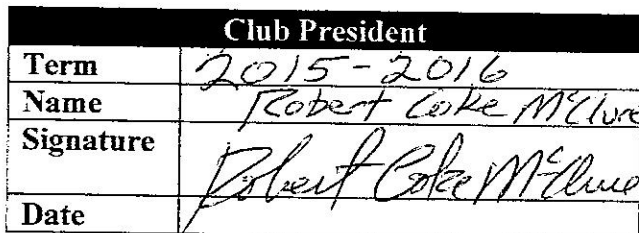 Club President
Term 2015-2016
Name Robert Coke McClure
Signature Robert Coke McClure
Date